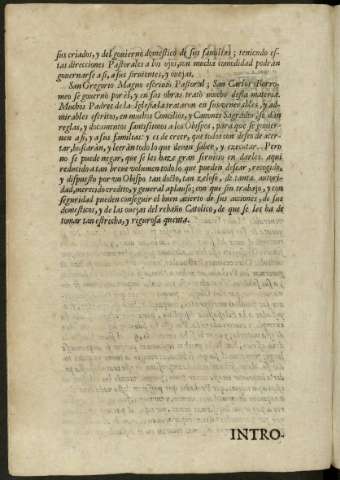 sus criados, y del govierno domestico de sus familias; teniendo es-
tas direcciones Pastorales a los ojos, con mucha comodidad podràn
governarse a sì, a sus sirvientes, y ovejas.
San Gregorio Magno escrivió Pastoral; San Carlos Borro-
meo se governò por èl, y en sus obras tratò mucho desta materia.
Muchos Padres de la Iglesia la trataron en sus venerables, y ad-
mirables escritos, en muchos Concilios, y Canones Sagrados se dàn
reglas, y documentos santissimos a los Obispos, para que se govier-
nen a sì, y a sus familias: y es de creer, que todos con deseo de acer-
tar, buscaràn, y leeràn todo lo que deven saber, y executar. Pero
no se puede negar, que se les haze gran servicio en darles, aqui
reducido a tan breve volumen todo lo que pueden desear, recogido,
y dispuesto por un Obispo tan docto, tan zeloso, de tanta autori-
dad, merecido credito, y general aplauso; con que sin trabajo, y con
seguridad pueden conseguir el buen acierto de sus acciones, de sus
domesticos, y de las ovejas del rebaño Catolico, de que se les ha de
tomar tan estrecha, y rigurosa quenta.
INTRO-